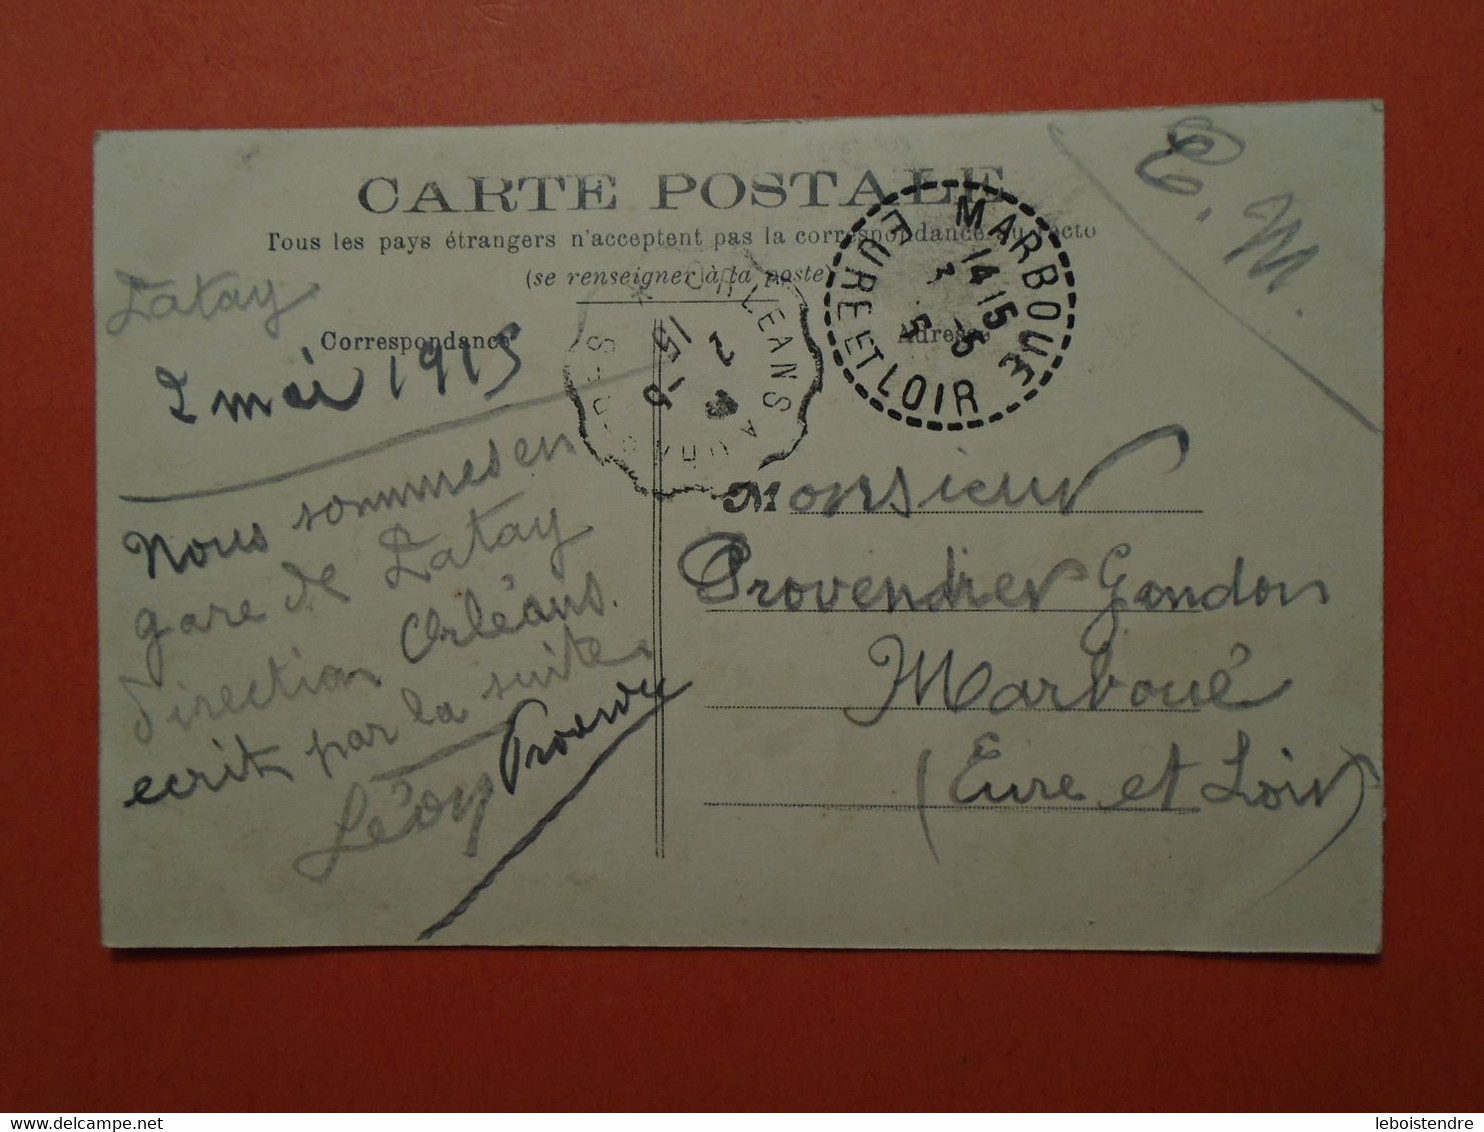 E. M.
CARTE POSTALE
Tous les pays étrangers n'acceptent pas la correspondance au recto
(se renseigner à la poste)
Correspondance
Adresse
MARBOUE
14-15
3 -5
15
EURE ET LOIR
ORLEANS A
2 -5
15
Patay
2 mai 1915
Nous sommes en
gare de Patay
direction Orléans.
ecrit par la suite.
Léon
Monsieur
Provendier Gondon
Marboué
(Eure et Loir)
leboistendre